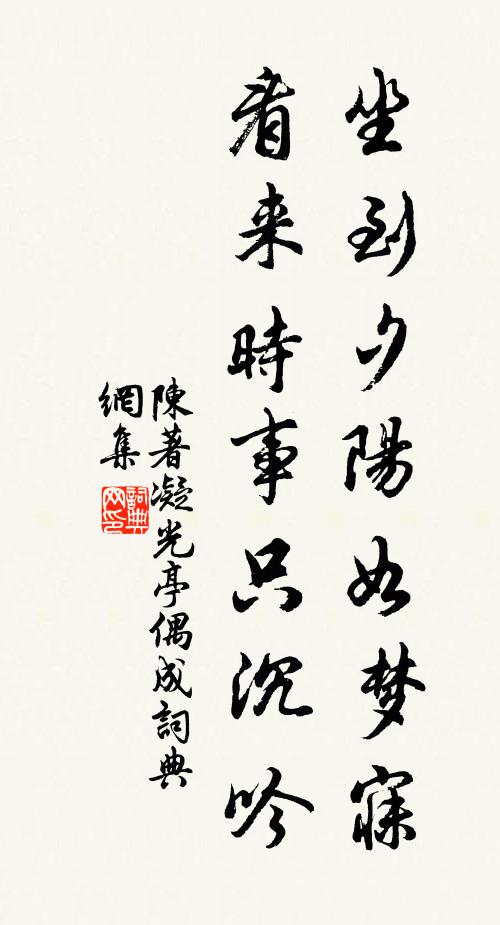 坐到夕陽如梦寐
看来時事只沉吟
陳著凝光亭偶成詞典
網集
詞典
网印